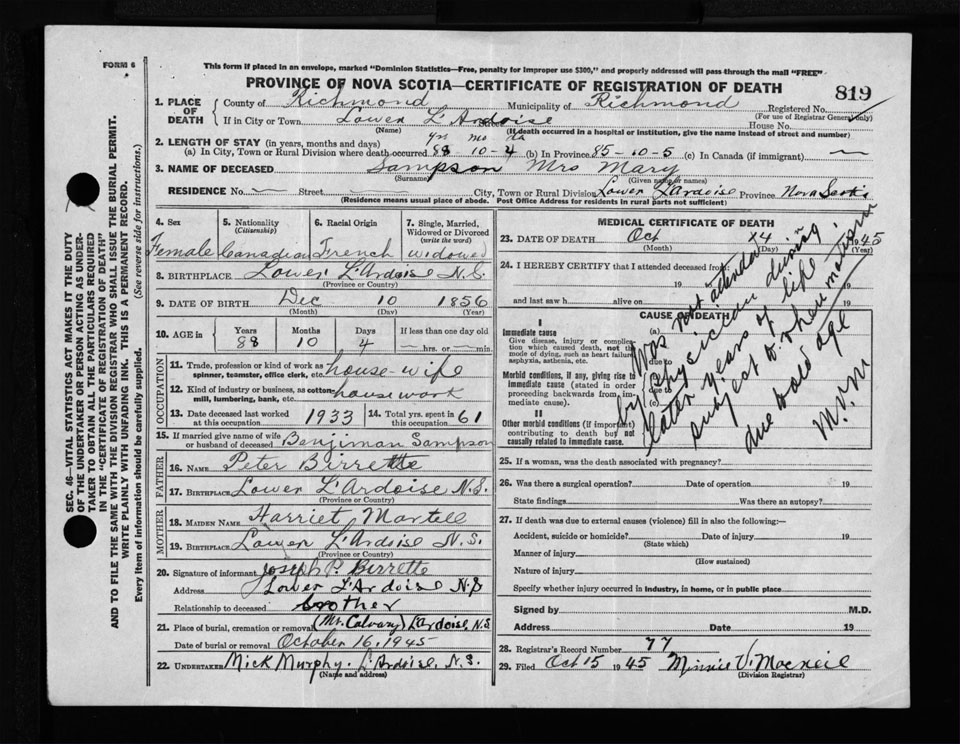 FORM 6
This form if placed in an envelope, marked "Dominion Statistics—Free, penalty for improper use $300," and properly addressed will pass through the mail "FREE"
PROVINCE OF NOVA SCOTIA—CERTIFICATE OF REGISTRATION OF DEATH
819
1. PLACE OF DEATH
County of Richmond Municipality of Richmond Registered No.
(For use of Registrar General only)
If in City or Town Lower L'Ardoise Street House No.
(Name) (If death occurred in a hospital or institution, give the name instead of street and number)
2. LENGTH OF STAY (in years, months and days) yrs mo da
(a) In City, Town or Rural Division where death occurred 88-10-4 (b) In Province 85-10-5 (c) In Canada (if immigrant) —
3. NAME OF DECEASED Sampson Mrs Mary
(Surname) (Given name or names)
RESIDENCE No. — Street — City, Town or Rural Division Lower L'Ardoise Province Nova Scotia
(Residence means usual place of abode. Post Office Address for residents in rural parts not sufficient)
4. Sex 5. Nationality (Citizenship) 6. Racial Origin 7. Single, Married, Widowed or Divorced (write the word)
Female Canadian French widowed
8. BIRTHPLACE Lower L'Ardoise N.S.
(Province or Country)
9. DATE OF BIRTH Dec 10 1856
(Month) (Day) (Year)
10. AGE in Years Months Days If less than one day old
88 10 4 — hrs. or — min.
OCCUPATION
11. Trade, profession or kind of work as spinner, teamster, office clerk, etc. house-wife
12. Kind of industry or business, as cotton-mill, lumbering, bank, etc. house work
13. Date deceased last worked at this occupation 1933 14. Total yrs. spent in this occupation 61
15. If married give name of wife or husband of deceased Benjiman Sampson
FATHER
16. NAME Peter Birrette
17. BIRTHPLACE Lower L'Ardoise N.S.
(Province or Country)
MOTHER
18. MAIDEN NAME Harriet Martell
19. BIRTHPLACE Lower L'Ardoise N.S.
(Province or Country)
20. Signature of informant Joseph P. Birrette
Address Lower L'Ardoise N.S
Relationship to deceased brother
21. Place of burial, cremation or removal (Mt. Calvary) L'ardoise, N.S
Date of burial or removal October 16, 1945
22. UNDERTAKER Mick Murphy. L'Ardoise, N.S.
(Name and address)
MEDICAL CERTIFICATE OF DEATH
23. DATE OF DEATH Oct 14 1945
(Month) (Day) (Year)
24. I HEREBY CERTIFY that I attended deceased from
19
and last saw h alive on 19
CAUSE OF DEATH
I
Immediate cause (a)
Give disease, injury or complication which caused death, not the mode of dying, such as heart failure, asphyxia, asthenia, etc. due to
Morbid conditions, if any, giving rise to immediate cause (stated in order proceeding backwards from immediate cause). (b)
due to
(c)
II
Other morbid conditions (if important) contributing to death but not causally related to immediate cause.
Was not attended
by physician during
later years of life
subject to rheumatism
due to old age
M.V.M
25. If a woman, was the death associated with pregnancy?
26. Was there a surgical operation? Date of operation 19
State findings Was there an autopsy?
27. If death was due to external causes (violence) fill in also the following—
Accident, suicide or homicide? Date of injury 19
(State which)
Manner of injury
(How sustained)
Nature of injury
Specify whether injury occurred in industry, in home, or in public place
Signed by M.D.
Address Date 19
28. Registrar's Record Number 77
29. Filed Oct 15 1945 Minnie V. Macneil
(Division Registrar)
SEC. 46—VITAL STATISTICS ACT MAKES IT THE DUTY
OF THE UNDERTAKER OR PERSON ACTING AS UNDER-
TAKER TO OBTAIN ALL THE PARTICULARS REQUIRED
IN THE "CERTIFICATE OF REGISTRATION OF DEATH"
AND TO FILE THE SAME WITH THE DIVISION REGISTRAR WHO SHALL ISSUE THE BURIAL PERMIT.
WRITE PLAINLY WITH UNFADING INK. THIS IS A PERMANENT RECORD.
Every item of information should be carefully supplied. (See reverse side for instructions.)